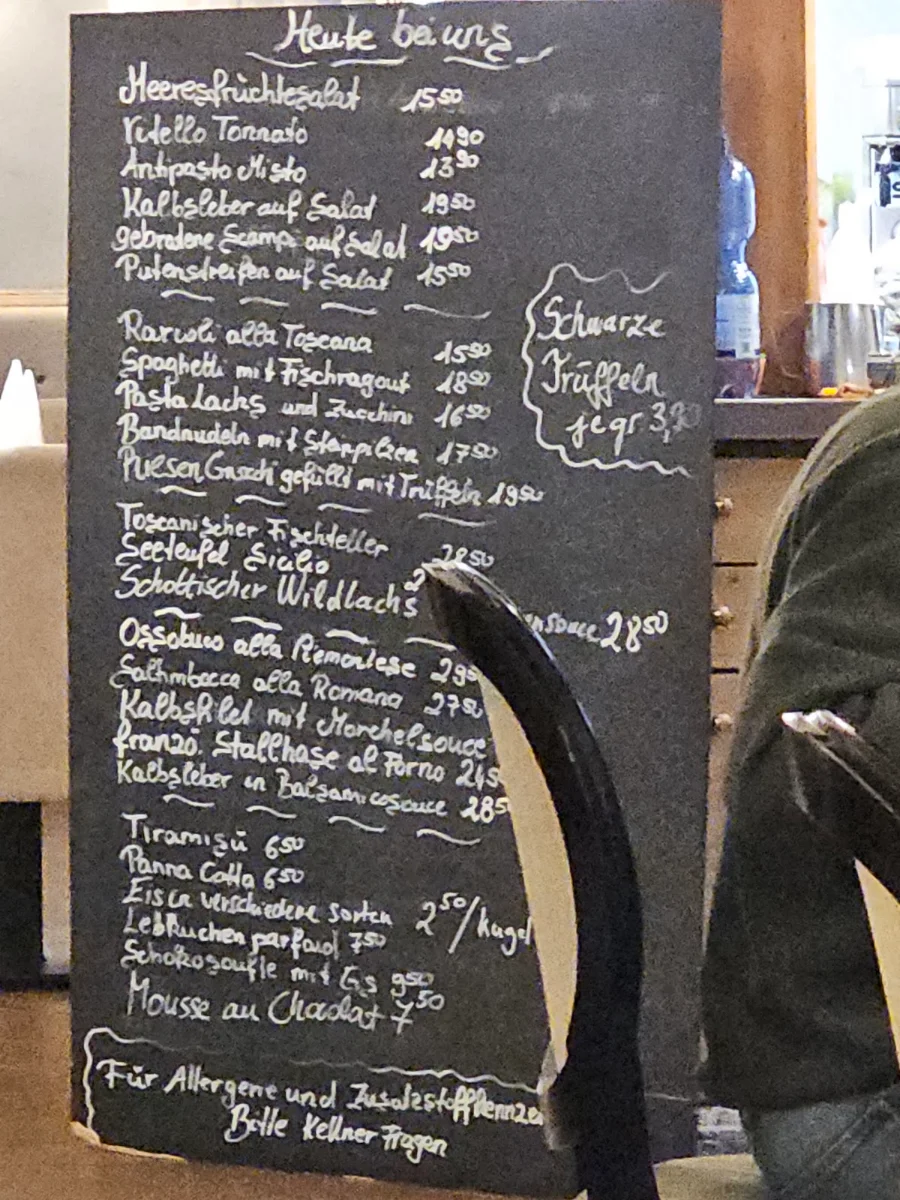 Heute bei uns
Meeresfrüchtesalat 15⁵⁰
Vitello Tonnato 14⁹⁰
Antipasto Misto 13⁹⁰
Kalbsleber auf Salat 19⁵⁰
gebratene Scampi auf Salat 19⁵⁰
Putenstreifen auf Salat 15⁵⁰
Ravioli alla Toscana 15⁵⁰
Spaghetti mit Fischragout 18⁵⁰
Pasta Lachs und Zucchini 16⁵⁰
Bandnudeln mit Steinpilzen 17⁵⁰
gefüllt mit Trüffeln 19⁵⁰
Schwarze
Trüffeln
je gr 3,
Toscanischer Fischteller 28⁵⁰
Seeteufel
Schottischer Wildlachs 28⁵⁰
Ossobuco alla Piemontese 29⁵
Saltimbocca alla Romana 27⁵⁰
Kalbsfilet mit Morchelsouce
franzö. Stallhase al Forno 24⁵
Kalbsleber in Balsamicosouce 28⁵
Tiramisù 6⁵⁰
Panna Cotta 6⁵⁰
Eis in verschiedene Sorten 2⁵⁰/Kugel
Lebkuchen parfait 7⁵⁰
Schokosoufle mit Eis 9⁵⁰
Mousse au Chocolat 7⁵⁰
Für Allergene und Zusatzstoffkennzei
Bitte Kellner Fragen